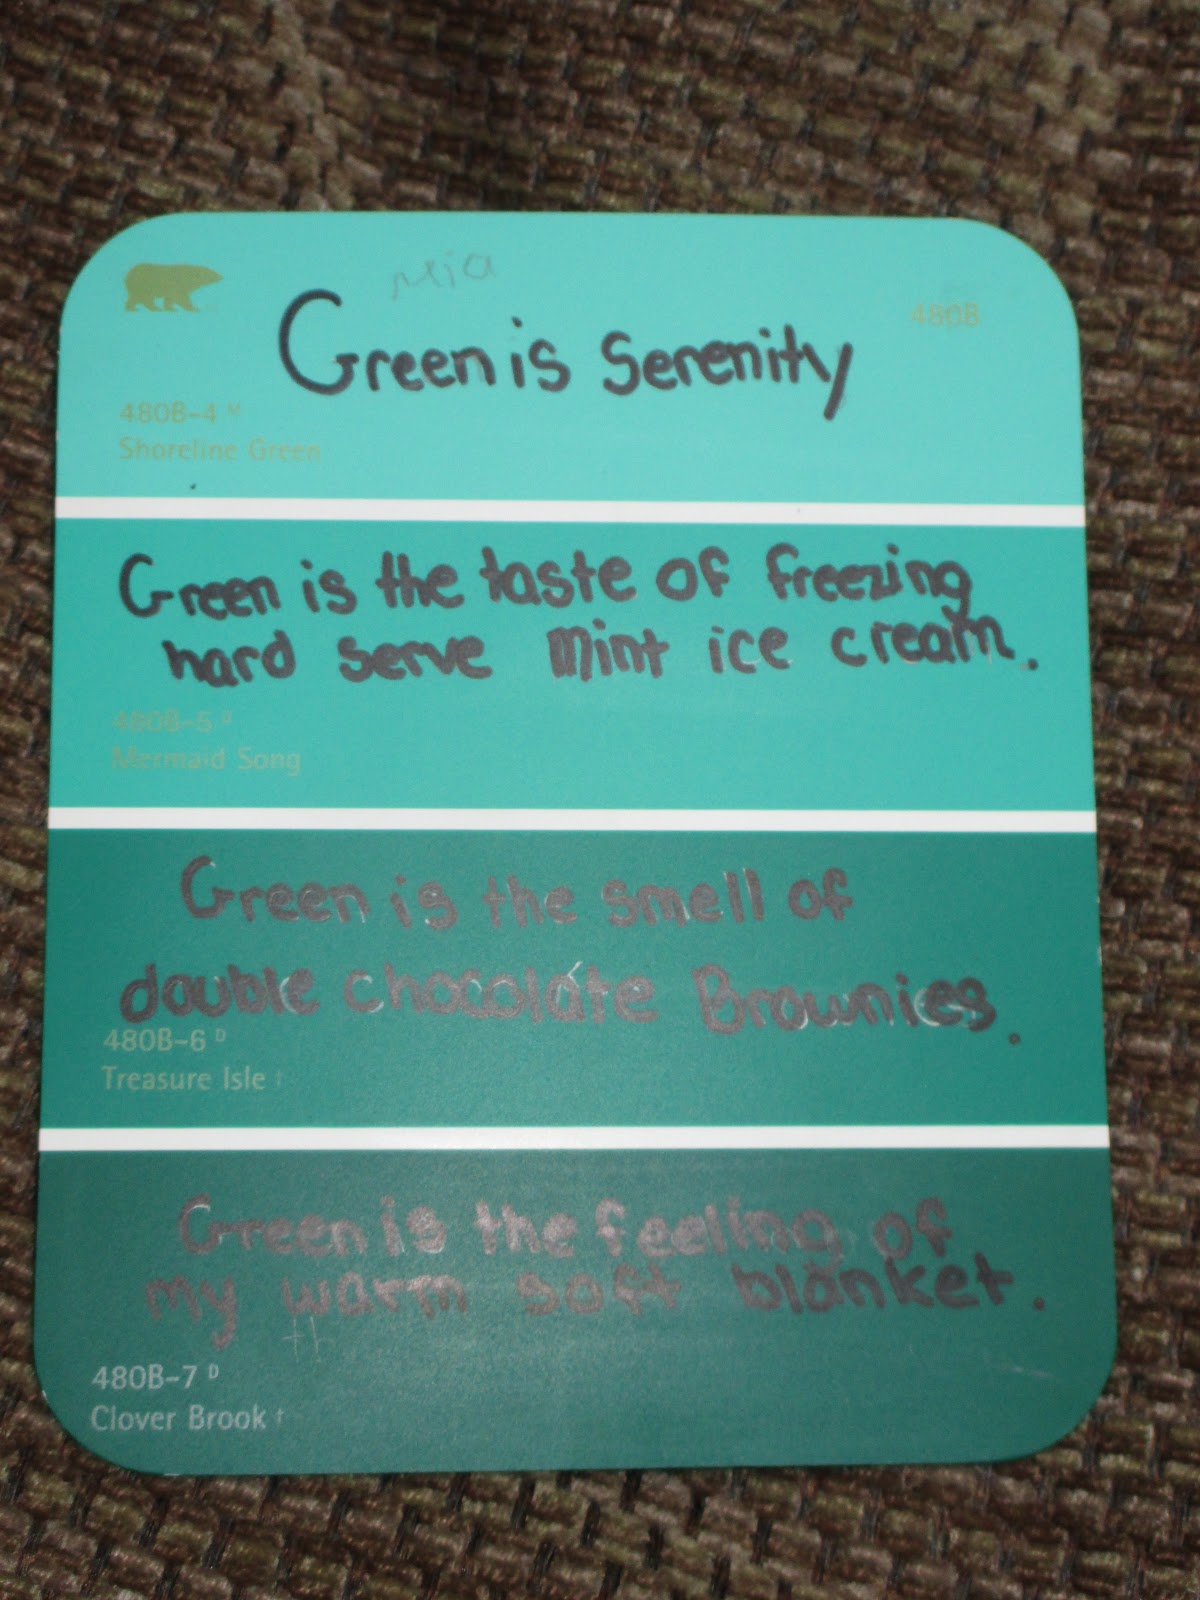 Mia
Green is Serenity
480B
480B-4 M
Shoreline Green
Green is the taste of freezing
hard serve mint ice cream.
480B-5 D
Mermaid Song
Green is the smell of
double chocolate Brownies.
480B-6 D
Treasure Isle †
Green is the feeling of
my warm soft blanket.
th
480B-7 D
Clover Brook †